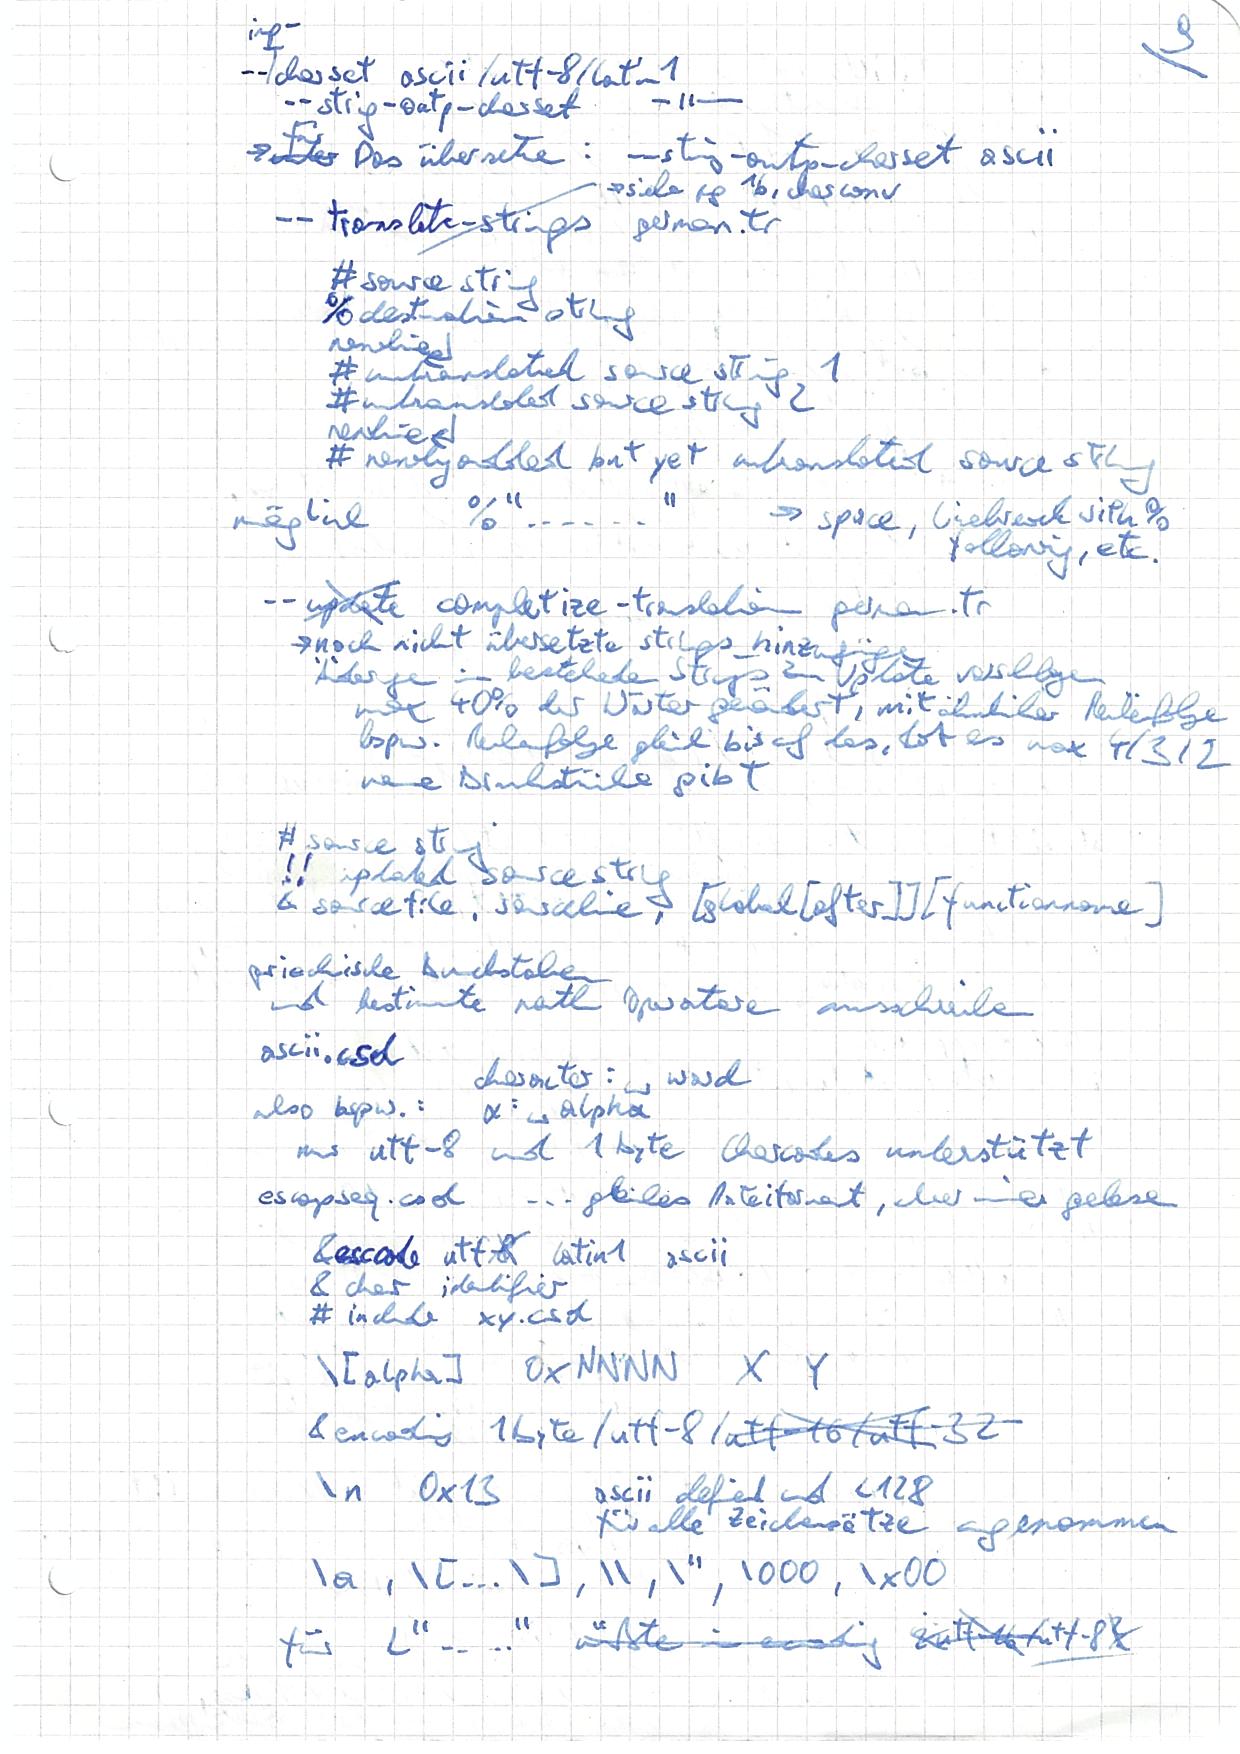 9
inp-
--charset ascii/utf-8/latin1
--string-outp-charset -"-
→ für Das übersetze: --string-outp-charset ascii
→ siehe pg 1b, charconv
--translate-strings german.tr
# source string
% destination string
newlined
# untranslated source string 1
# untranslated source string 2
newlined
# newly added but yet untranslated source string
möglich %"......." → space, linebreak with %
following, etc.
--update completize-translation german.tr
→ noch nicht übersetzte strings hinzufügen
Änderungen in bestehenden Strings zum Update vorschlagen
max 40% der Wörter geändert, mit ähnlicher Reihenfolge
bspw. Reihenfolge gleich bis auf das, dass es max 4/3/2
neue Bruchstücke gibt
# source string
!! updated source string
& sourcefile, sourceline, [global[after]][functionname]
griechische Buchstaben
und bestimmte math Operatoren ausschreiben
ascii.csd
character:␣word
also bspw.: α:␣alpha
nur utf-8 und 1byte Charcodes unterstützt
escapseq.csd ... gleiches Dateiformat, aber immer gelesen
&escode utf8 latin1 ascii
& char identifier
# include xy.csd
\[alpha] 0xNNNN X Y
&encoding 1byte/utf-8/utf-16/utf-32
\n 0x13 ascii defined und <128
für alle Zeichensätze angenommen
\a, \[...\], \\, \", \000, \x00
für L"....." müßte in encoding utf-16/utf-8